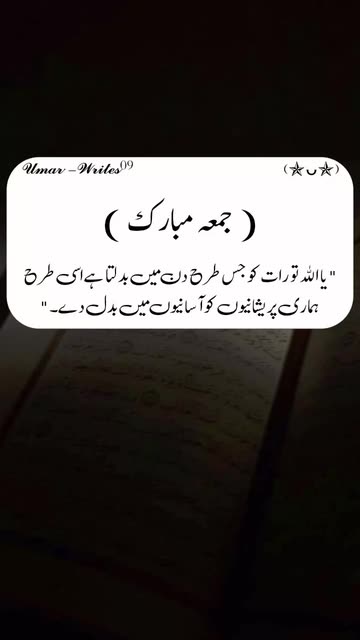 Umar-Writes09
(✯ ᴗ ✯)
( جمعہ مبارک )
"یااللہ تو رات کو جس طرح دن میں بدلتا ہے اسی طرح
ہماری پریشانیوں کو آسانیوں میں بدل دے۔"